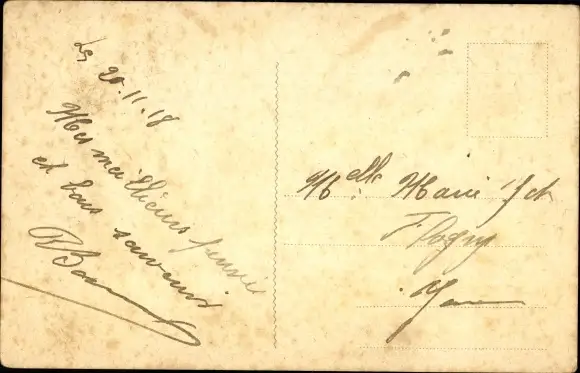 Le 20.11.18
Mes meilleurs pensées
et bons souvenirs
Melle Marie
Flogny
Yonne